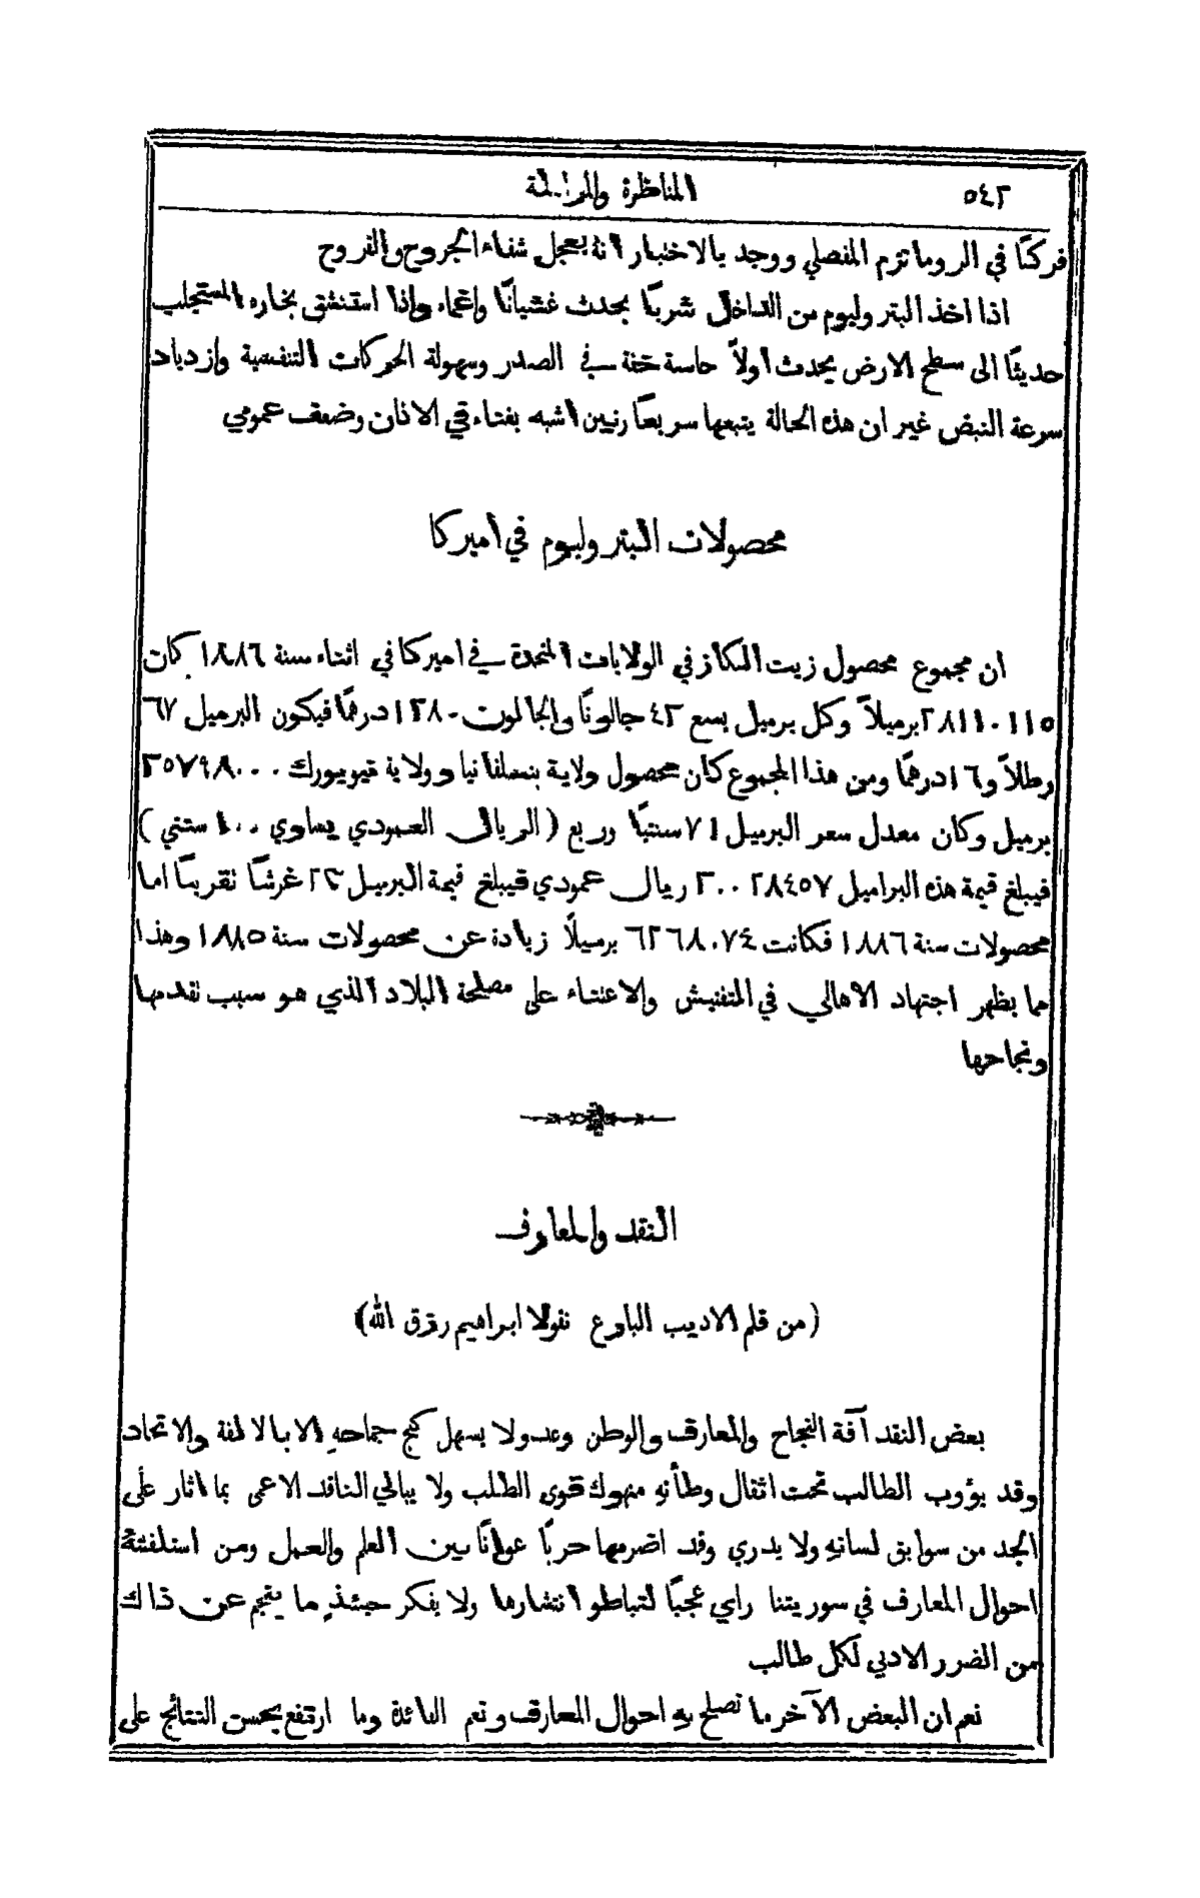 ٥٤٢
المناظرة والمراسلة
فركنًا في الروماتزم المفصلي ووجد بالاختبار انهُ يعجل شفاء الجروح والقروح
اذا اخذ البتروليوم من الداخل شربًا يحدث غشيانًا واغماء واذا استنشق بخاره المستجلب
حديثًا الى سطح الارض يحدث اولاً حاسة خفة في الصدر وسهولة الحركات التنفسية وازدياد
سرعة النبض غير ان هذه الحالة يتبعها سريعًا رنين اشبه بغناء في الاذان وضعف عمومي
محصولات البتروليوم في أميركا
ان مجموع محصول زيت الكاز في الولايات المتحدة في اميركا في اثناء سنة ١٨٨٦ كان
٢٨١١٠١١٥ برميلاً وكل برميل يسع ٤٢ جالونًا والجالون ١٢٨٠ درهمًا فيكون البرميل ٦٧
رطلاً و١٦ درهمًا ومن هذا المجموع كان محصول ولاية بنسلفانيا وولاية نيويورك ٢٥٧٩٨٠٠٠
برميل وكان معدل سعر البرميل ٧١ سنتيًا وربع (الريال العمودي يساوي ١٠٠ سنتي)
فيبلغ قيمة هذه البراميل ٢٠٠٢٨٤٥٧ ريال عمودي فيبلغ قيمة البرميل ٢٢ غرشًا تقريبًا اما
محصولات سنة ١٨٨٦ فكانت ٦٢٦٨٠٧٤ برميلًا زيادة عن محصولات سنة ١٨٨٥ وهذا
مما يظهر اجتهاد الاهالي في التفتيش والاعتناء على مصلحة البلاد الذي هو سبب تقدمها
ونجاحها
النقد والمعارف
(من قلم الاديب البارع نقولا ابراهيم رزق الله)
بعض النقد آفة النجاح والمعارف والوطن وعدو لا يسهل كبح جماحهِ الا بالالفة والاتحاد
وقد يؤوب الطالب تحت اثقال وطأتهِ منهوك قوى الطلب ولا يبالي الناقد الاعمى بما اثار على
الجد من سوابق لسانهِ ولا يدري وقد اضرمها حربًا عوانًا بين العلم والعمل ومن استلفتتهُ
احوال المعارف في سوريتنا راي عجبًا لتباطوء انتشارها ولا يفكر حينئذٍ ما ينجم عن ذاك
من الضرر الادبي لكل طالب
نعم ان البعض الآخر ما تصلح بهِ احوال المعارف وتعم الفائدة وما ارتفع بحسن النتائج على